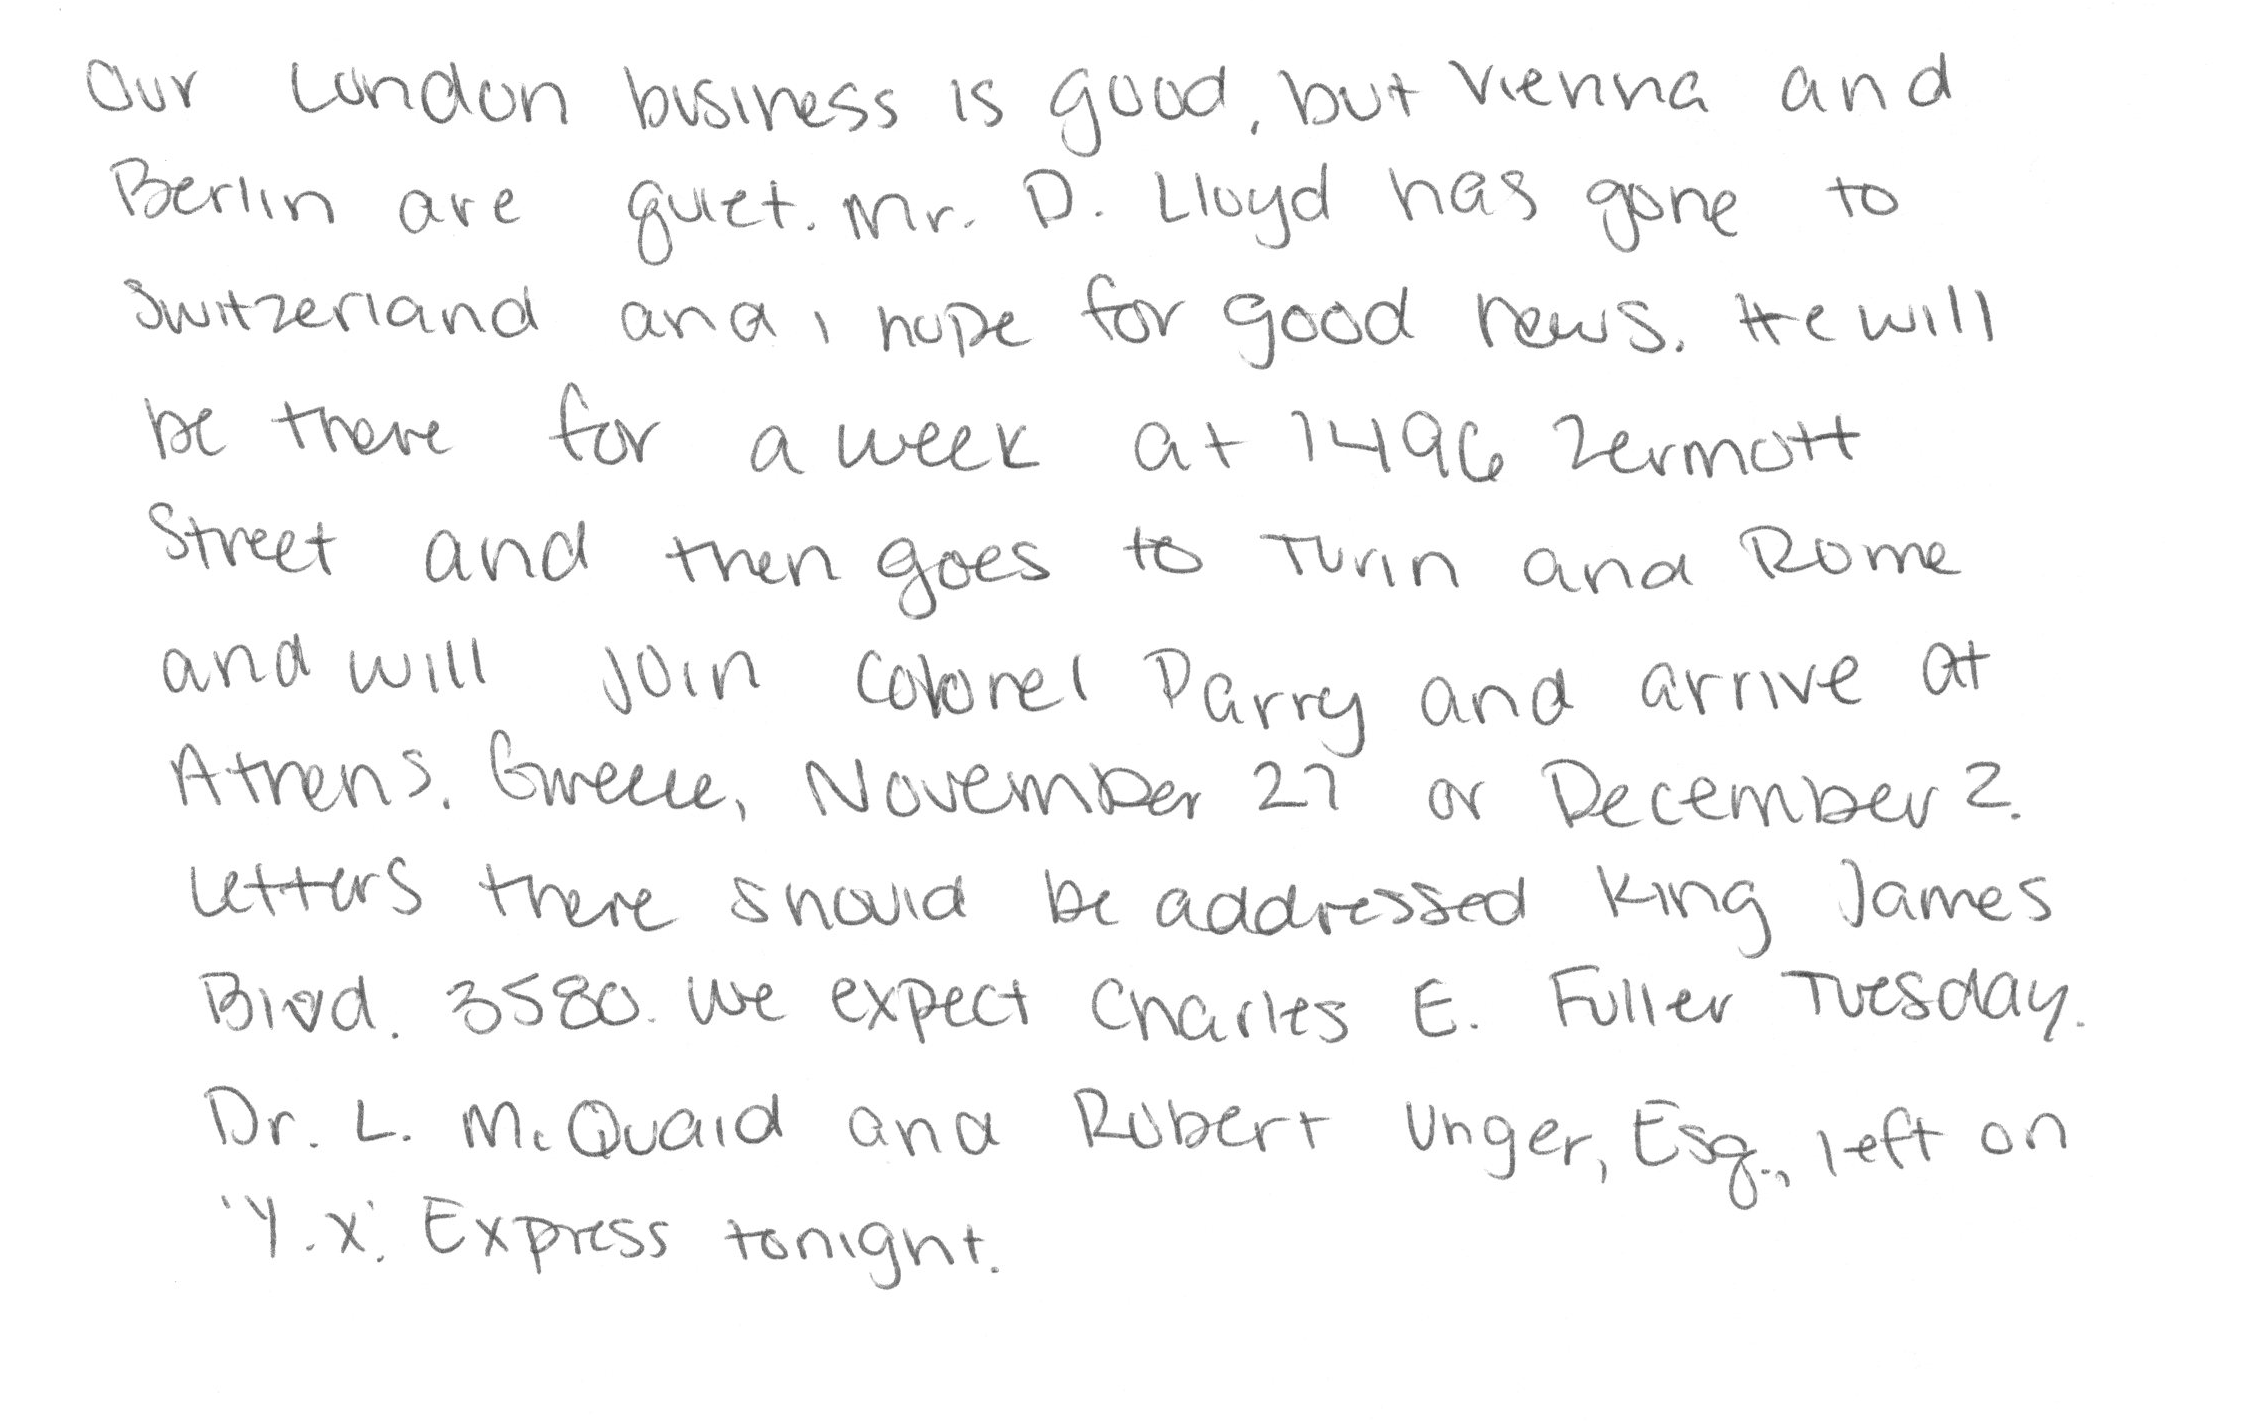 Our London business is good, but Vienna and
Berlin are quiet. Mr. D. Lloyd has gone to
Switzerland and i hope for good news. He will
be there for a week at 1496 Zermott
Street and then goes to Turin and Rome
and will join Colonel Parry and arrive at
Athens. Greece, November 27 or December 2.
Letters there should be addressed King James
Blvd. 3580. We expect Charles E. Fuller Tuesday.
Dr. L. McQuaid and Robert Unger, Esq., left on
'Y.X.' Express tonight.